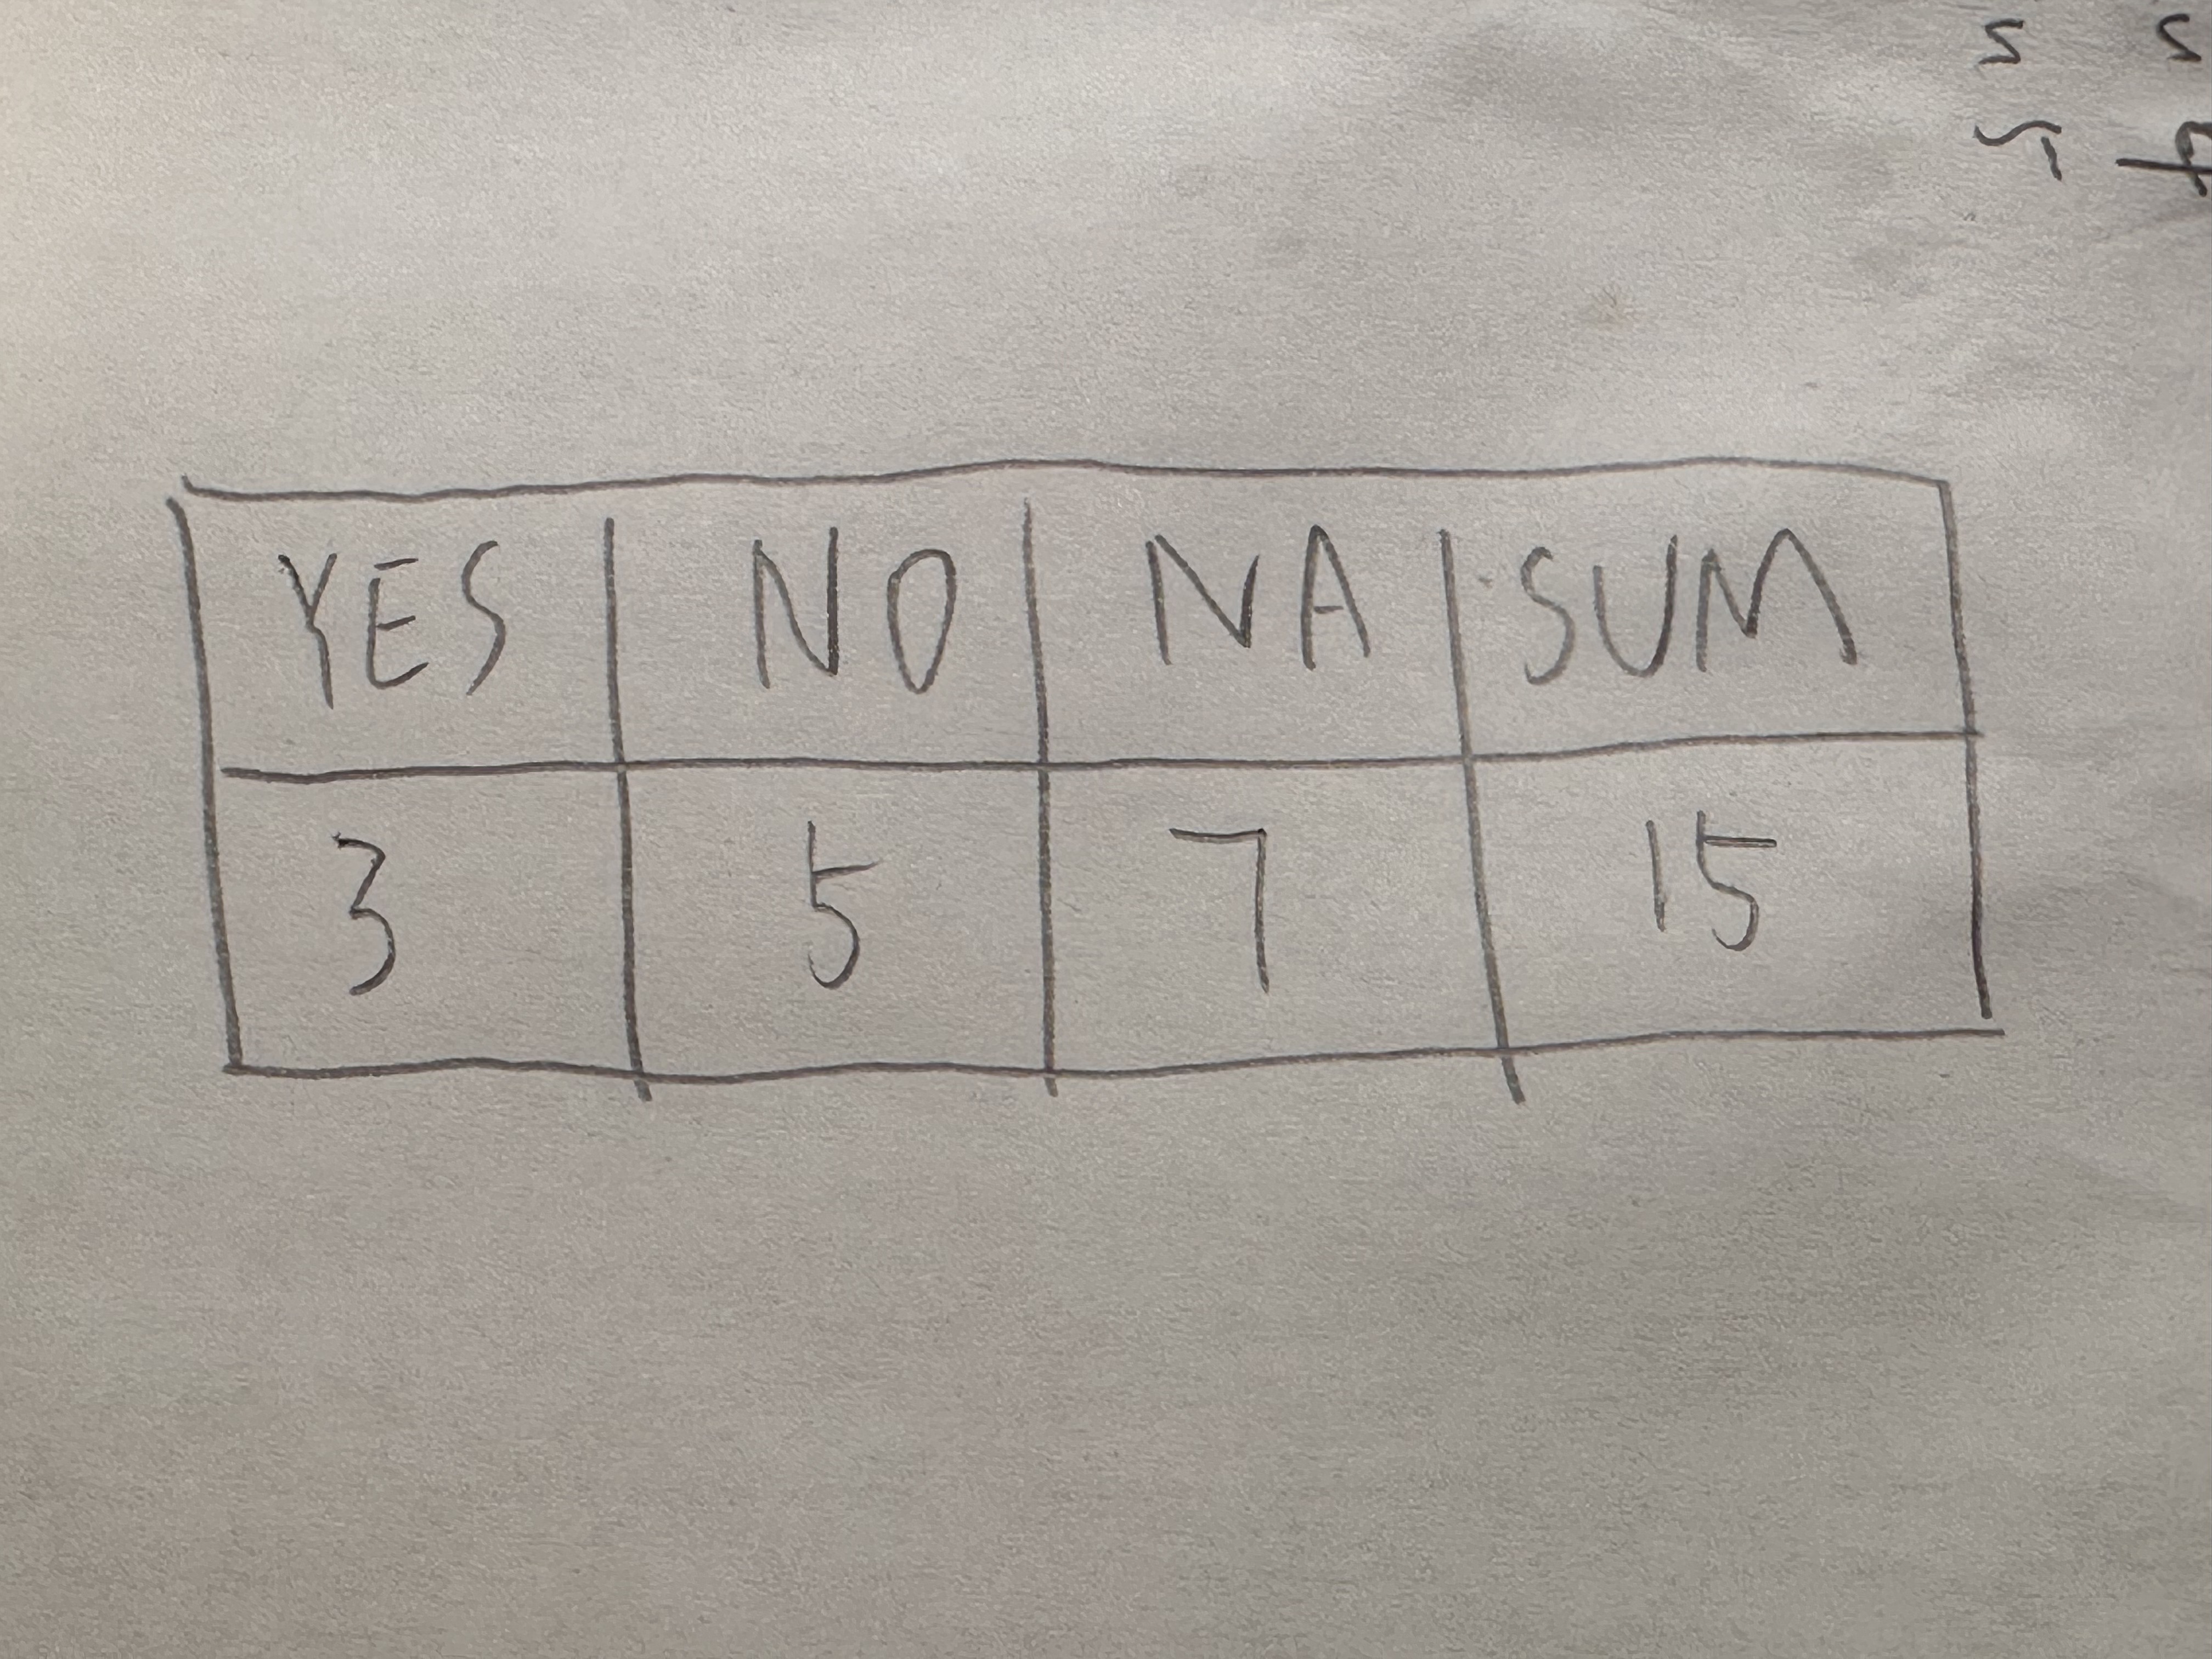 YES NO NA SUM
3 5 7 15